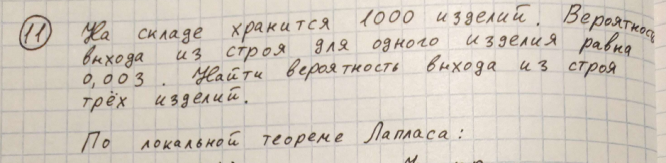 11 На складе хранится 1000 изделий. Вероятность
выхода из строя для одного изделия равна
0,003. Найти вероятность выхода из строя
трёх изделий.
По локальной теореме Лапласа: